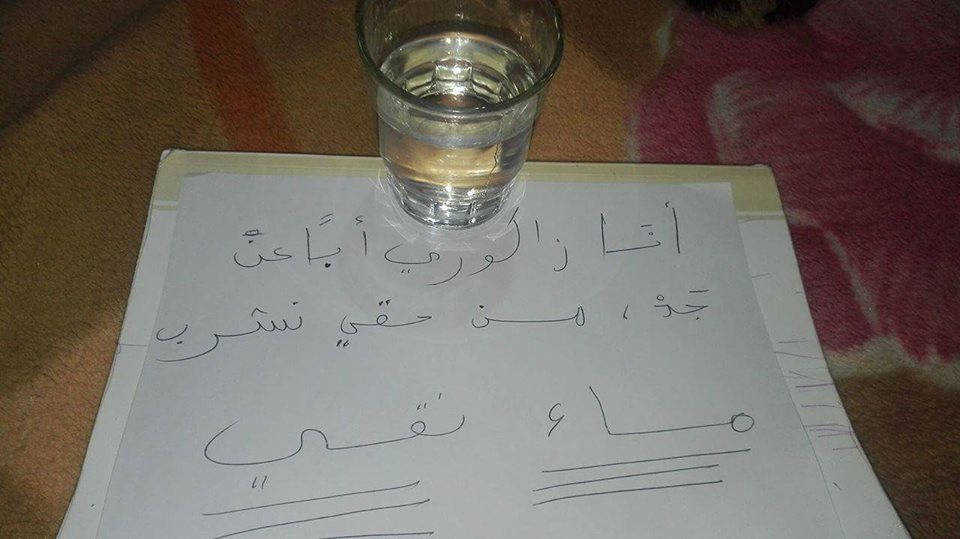 أنَا زاكوري أبًا عنّ
جَدْ، من حقي نشرب
ماء نقي